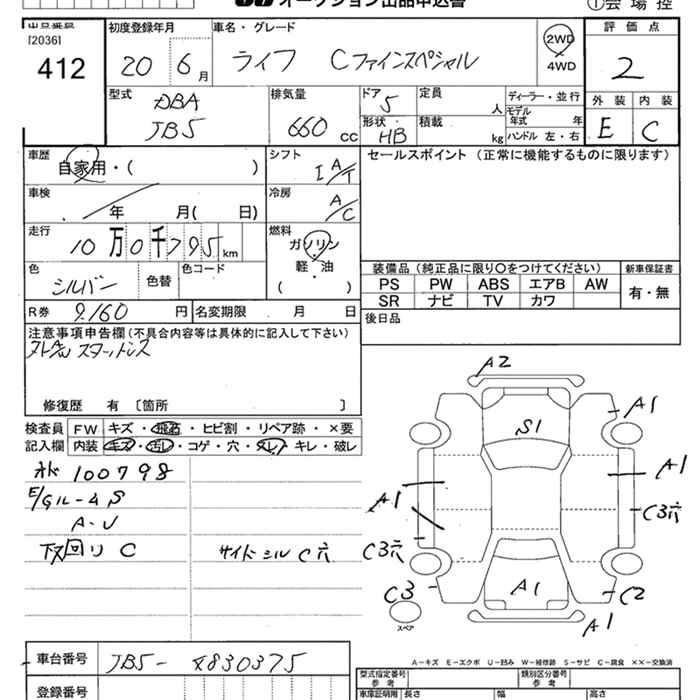 オークション出品申込書
①会場控
出品番号
[2036]
412
初度登録年月
20 6月
車名・グレード
ライフ Cファインスペシャル
2WD
・
4WD
評価点
2
外装 内装
E C
型式
DBA
JB5
排気量
660 cc
ドア 5
形状 HB
定員 人
積載 kg
ディーラー・並行
モデル年式 年
ハンドル 左・右
車歴
自家用・( )
シフト
I A/T
セールスポイント (正常に機能するものに限ります)
車検
年 月( 日)
冷房
A/C
走行
10万0千795km
燃料
ガソリン
・
軽・油
( )
色
シルバー
色替
色コード
装備品 (純正品に限り○をつけてください)
新車保証書
PS PW ABS エアB AW
SR ナビ TV カワ
有・無
R券 9.160円
名変期限 月 日
後日品
注意事項申告欄(不具合内容等は具体的に記入して下さい)
スタットレス
修復歴 有 〔箇所 〕
検査員記入欄
FW キズ・飛石・ヒビ割・リペア跡・×要
内装 キズ・汚レ・コゲ・穴・スレ・キレ・破レ
100798
E/Gルーム S
A-U
下回り C
サイドシル C穴
A2
A1
S1
A1
A1
C3穴
C3穴
C3
C2
A1
A1
スペア
A－キズ E－エクボ U－凹み W－補修跡 S－サビ C－腐食 ××－交換済
車台番号
JB5-4830375
登録番号
型式指定番号
参考
類別区分番号
参考
車庫証明用 長さ 幅 高さ